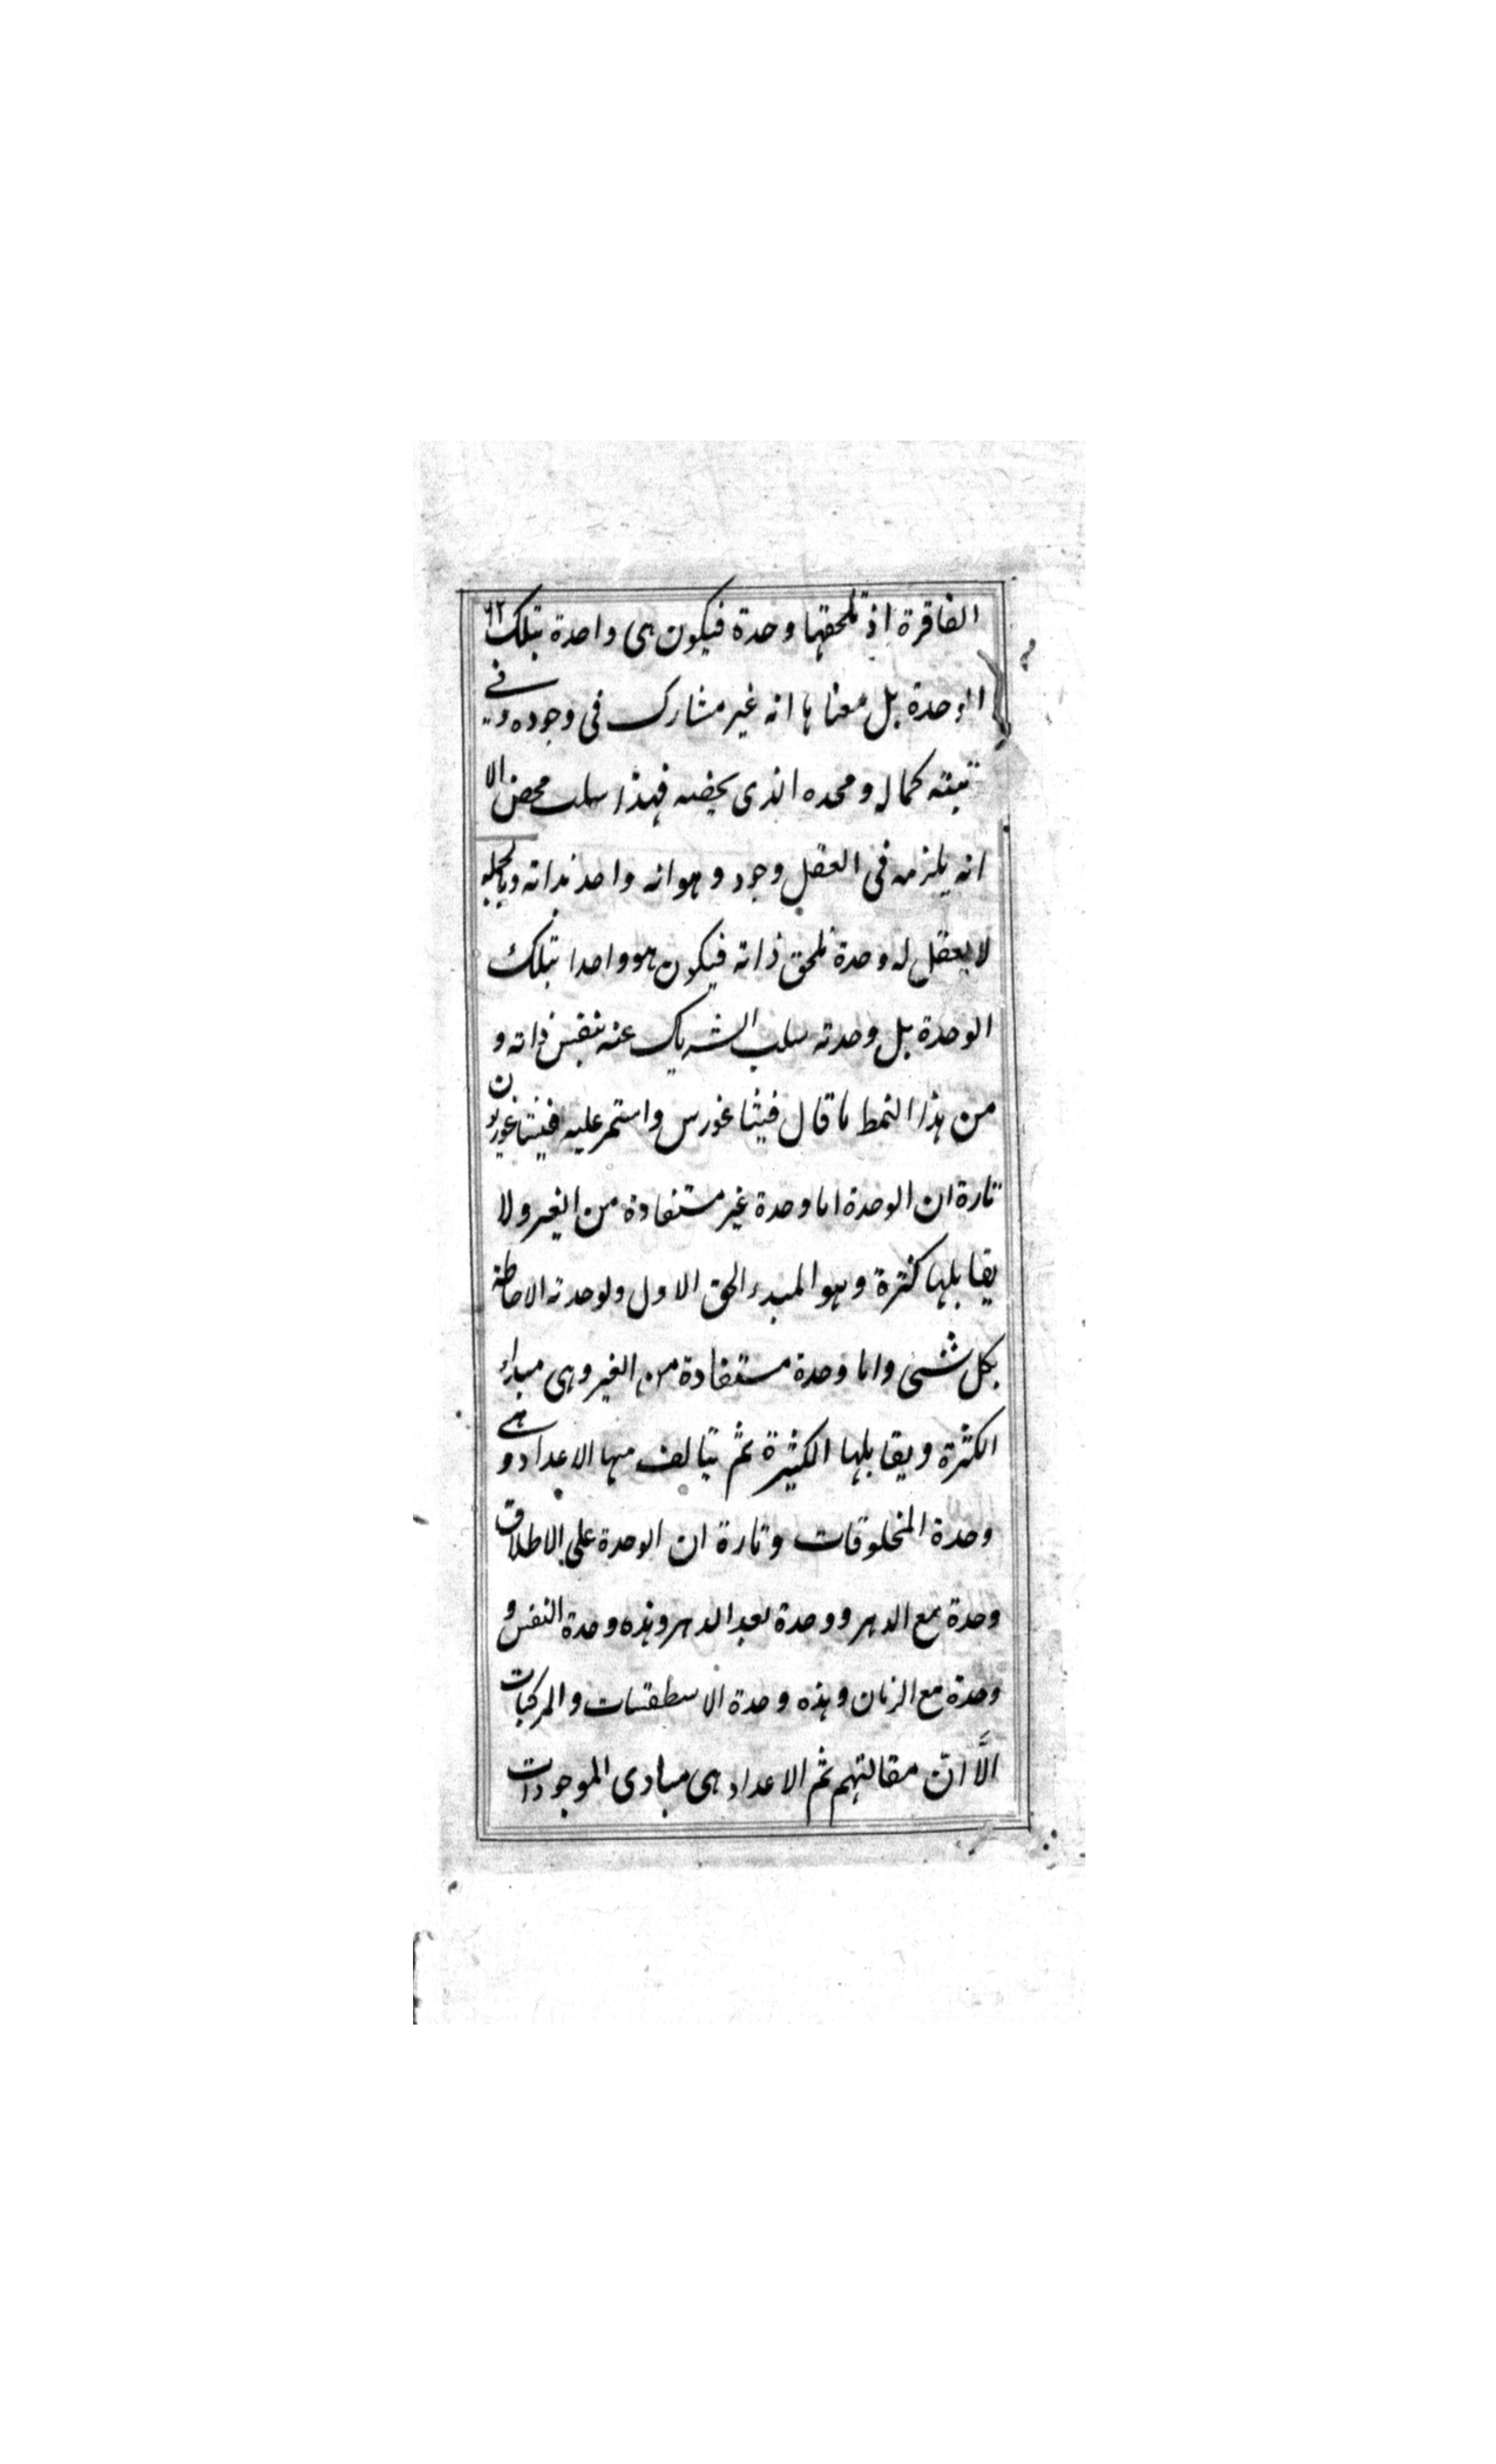 الفاقرة اذ تلحقها وحدة فيكون هى واحدة بتلك ٩٢
الوحدة بل معناها انه غير مشارك فى وجوده و فے
كماله ومحده الذى يخصه فهذا سلب محض الا
انه يلزمه فى العقل وجود وهو انه واحد بذاته وبالجملة
لا يعقل له وحدة تلحق ذاته فيكون هو واحدا بتلك
الوحدة بل وحدته سلب الشريك عنه بنفس ذاته و
من هذا النمط ما قال فيثاغورس واستمر عليه فيثاغوريون
تارة ان الوحدة اما وحدة غير مستفادة من الغير ولا
يقابلها كثرة وهو المبدء الحق الاول ولوحدته الاحاطة
بكل شئ واما وحدة مستفادة من الغير وهى مبداء
الكثرة ويقابلها الكثيرة ثم تتالف منها الاعداد و هے
وحدة المخلوقات وتارة ان الوحدة على الاطلاق
وحدة مع الدهر ووحدة بعد الدهر وهذه وحدة النفس و
وحدة مع الزمان وهذه وحدة الاسطقسات والمركبات
الَّا انّ مقالتهم ثم الاعداد هى مبادى الموجودات